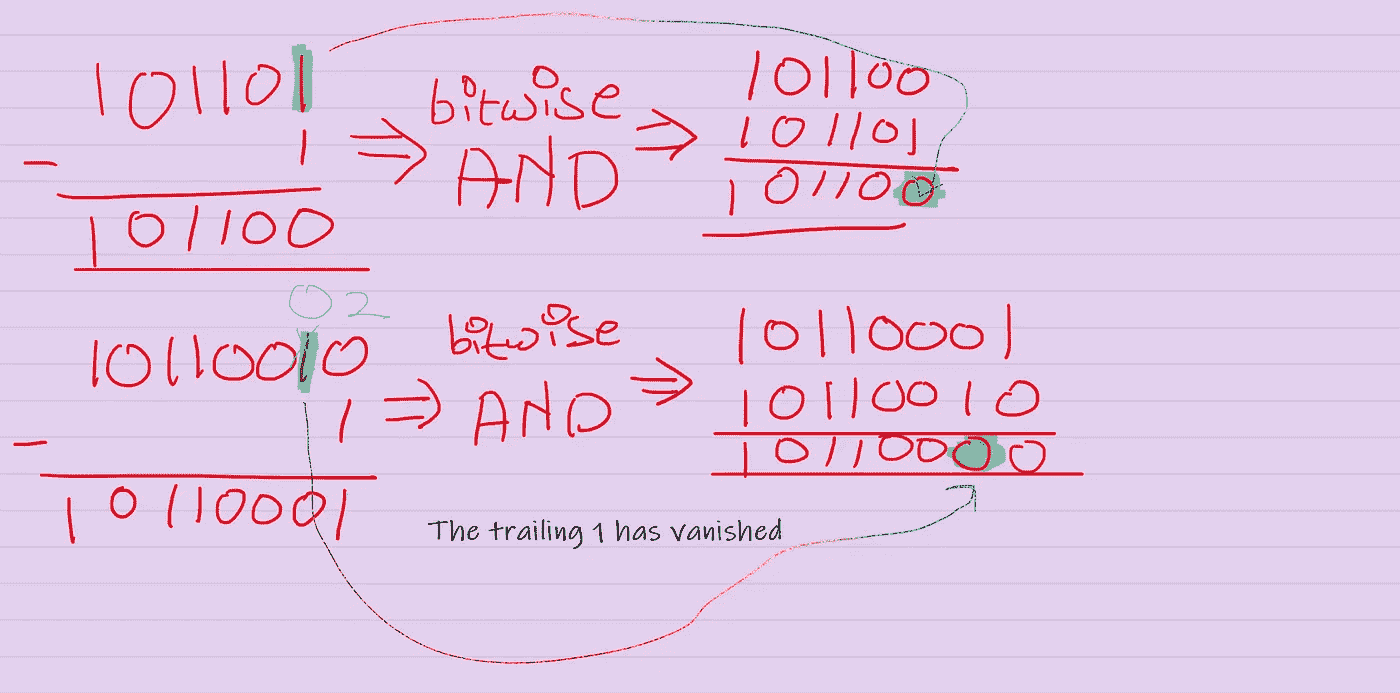 101101
1
-
101100
⇒ bitwise AND ⇒
101100
101101
101100
0 2
10110010
1
-
10110001
⇒ bitwise AND ⇒
10110001
10110010
10110000
The trailing 1 has vanished